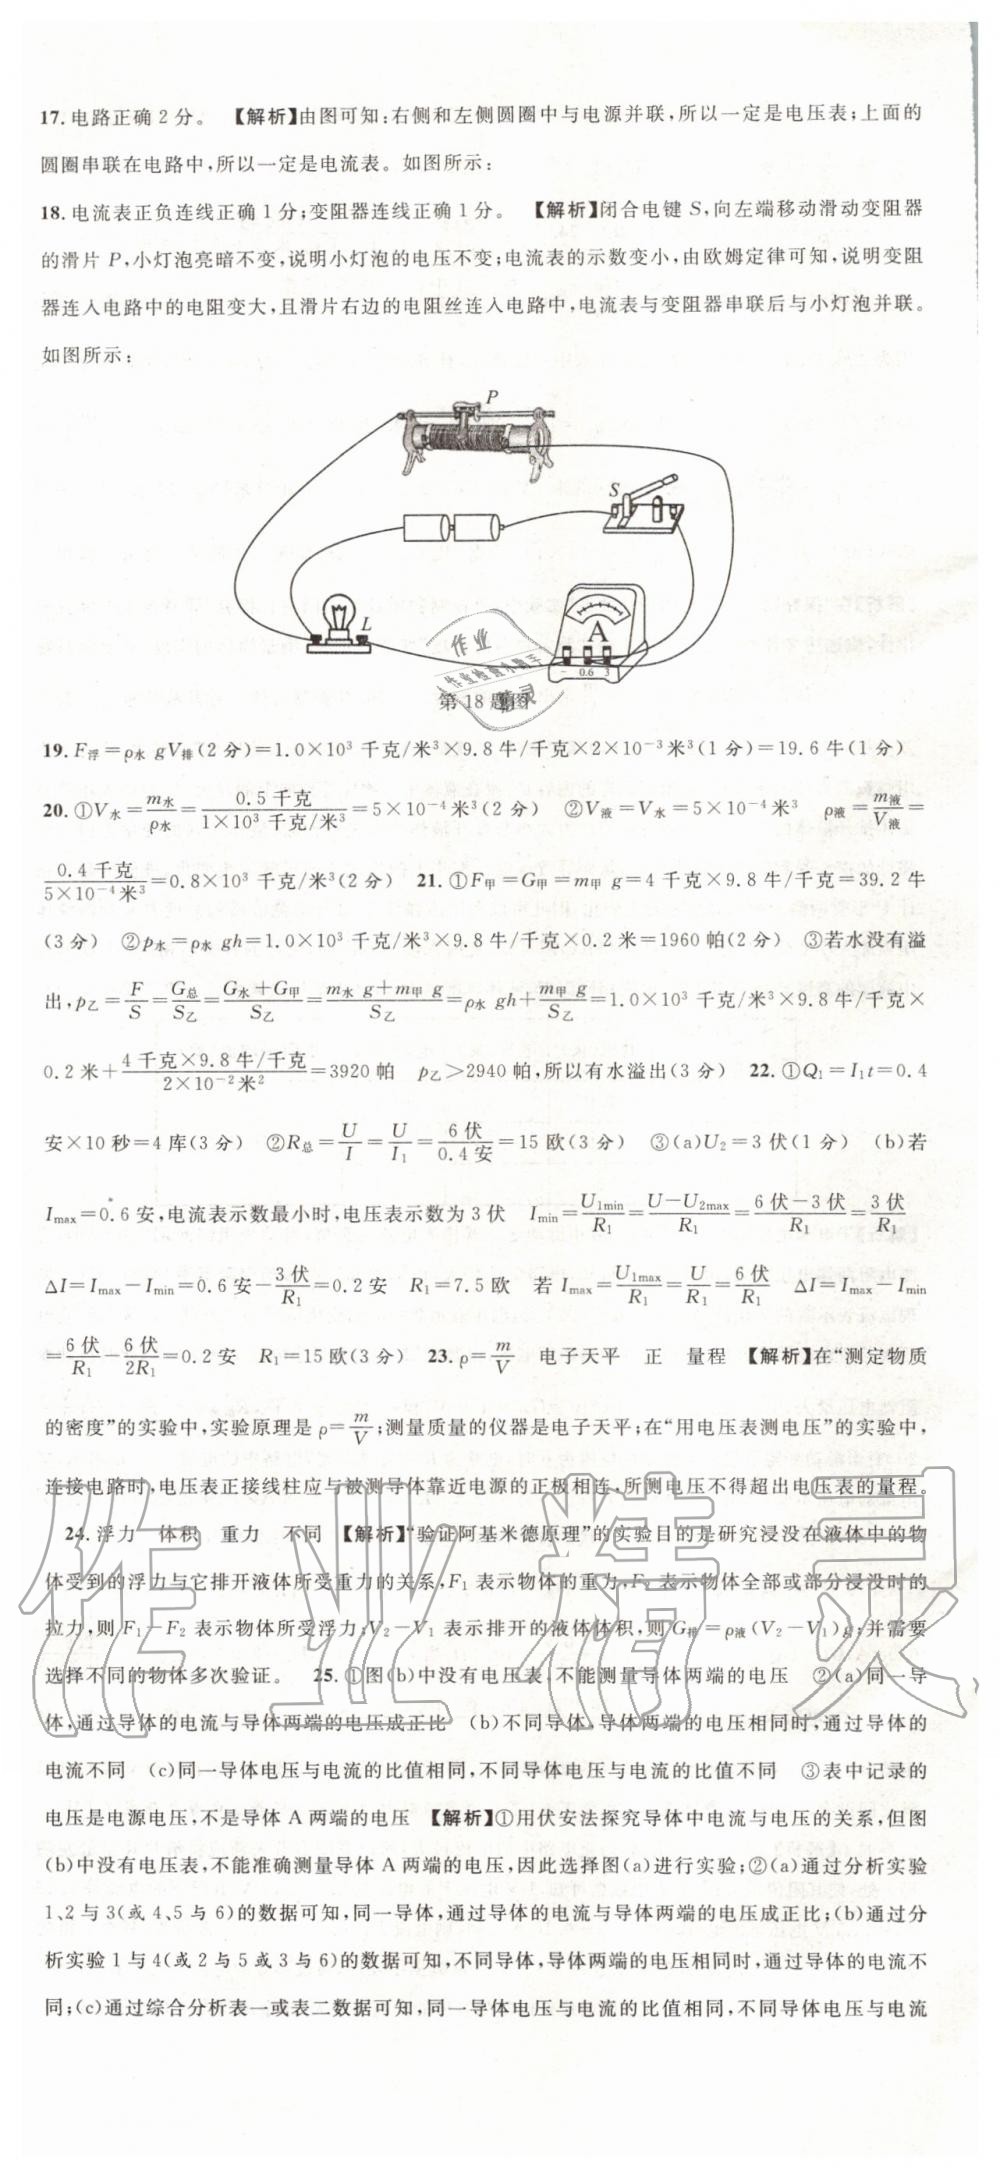 17.电路正确2分。 【解析】由图可知:右侧和左侧圆圈中与电源并联,所以一定是电压表;上面的
圆圈串联在电路中,所以一定是电流表。如图所示:
18.电流表正负连线正确1分;变阻器连线正确1分。 【解析】闭合电键S,向左端移动滑动变阻器
的滑片P,小灯泡亮暗不变,说明小灯泡的电压不变;电流表的示数变小,由欧姆定律可知,说明变阻
器连入电路中的电阻变大,且滑片右边的电阻丝连入电路中,电流表与变阻器串联后与小灯泡并联。
如图所示:
P
S
L
A
- 0.6 3
第18题图
19.F浮=ρ水 gV排(2分)=1.0×10³千克/米³×9.8牛/千克×2×10⁻³米³(1分)=19.6牛(1分)
20.①V水=m水/ρ水=0.5千克/1×10³千克/米³=5×10⁻⁴米³(2分) ②V液=V水=5×10⁻⁴米³ ρ液=m液/V液=
0.4千克/5×10⁻⁴米³=0.8×10³千克/米³(2分) 21.①F甲=G甲=m甲 g=4千克×9.8牛/千克=39.2牛
(3分) ②p水=ρ水 gh=1.0×10³千克/米³×9.8牛/千克×0.2米=1960帕(2分) ③若水没有溢
出,p乙=F/S=G总/S乙=G水+G甲/S乙=m水 g+m甲 g/S乙=ρ水 gh+m甲 g/S乙=1.0×10³千克/米³×9.8牛/千克×
0.2米+4千克×9.8牛/千克/2×10⁻²米²=3920帕 p乙>2940帕,所以有水溢出(3分) 22.①Q₁=I₁t=0.4
安×10秒=4库(3分) ②R总=U/I=U/I₁=6伏/0.4安=15欧(3分) ③(a)U₂=3伏(1分) (b)若
Imax=0.6安,电流表示数最小时,电压表示数为3伏 Imin=U1min/R₁=U-U2max/R₁=6伏-3伏/R₁=3伏/R₁
ΔI=Imax-Imin=0.6安-3伏/R₁=0.2安 R₁=7.5欧 若Imax=U1max/R₁=U/R₁=6伏/R₁ ΔI=Imax-Imin
=6伏/R₁-6伏/2R₁=0.2安 R₁=15欧(3分) 23.ρ=m/V 电子天平 正 量程 【解析】在“测定物质
的密度”的实验中,实验原理是ρ=m/V;测量质量的仪器是电子天平;在“用电压表测电压”的实验中,
连接电路时,电压表正接线柱应与被测导体靠近电源的正极相连,所测电压不得超出电压表的量程。
24.浮力 体积 重力 不同 【解析】“验证阿基米德原理”的实验目的是研究浸没在液体中的物
体受到的浮力与它排开液体所受重力的关系,F₁表示物体的重力,F₂表示物体全部或部分浸没时的
拉力,则F₁-F₂表示物体所受浮力;V₂-V₁表示排开的液体体积,则G排=ρ液(V₂-V₁)g;并需要
选择不同的物体多次验证。 25.①图(b)中没有电压表,不能测量导体两端的电压 ②(a)同一导
体,通过导体的电流与导体两端的电压成正比 (b)不同导体,导体两端的电压相同时,通过导体的
电流不同 (c)同一导体电压与电流的比值相同,不同导体电压与电流的比值不同 ③表中记录的
电压是电源电压,不是导体A两端的电压 【解析】①用伏安法探究导体中电流与电压的关系,但图
(b)中没有电压表,不能准确测量导体A两端的电压,因此选择图(a)进行实验;②(a)通过分析实验
1、2与3(或4、5与6)的数据可知,同一导体,通过导体的电流与导体两端的电压成正比;(b)通过分
析实验1与4(或2与5或3与6)的数据可知,不同导体,导体两端的电压相同时,通过导体的电流不
同;(c)通过综合分析表一或表二数据可知,同一导体电压与电流的比值相同,不同导体电压与电流
作业精灵